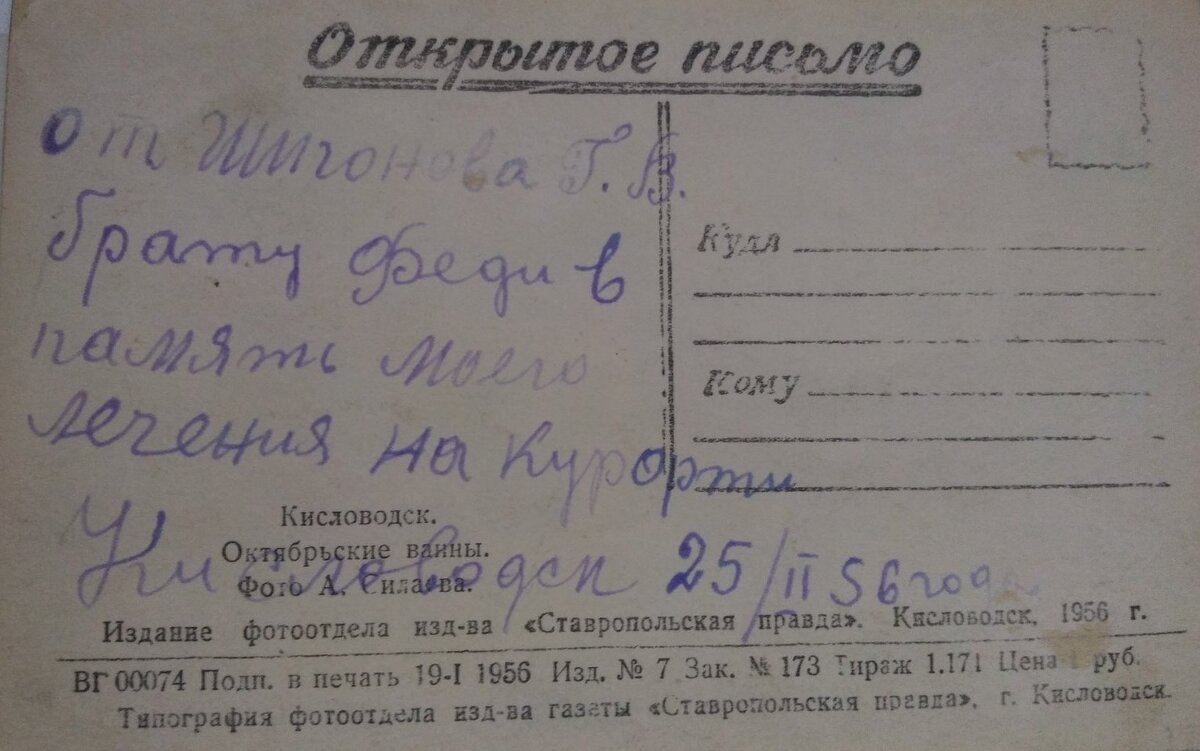 Открытое письмо
от Шигонова Г. В.
брату Феди в
память моего
лечения на курорти
Кисловодск 25/II 56 года
Куда
Кому
Кисловодск.
Октябрьские ванны.
Фото А. Силаева.
Издание фотоотдела изд-ва «Ставропольская правда». Кисловодск, 1956 г.
ВГ 00074 Подп. в печать 19-I 1956 Изд. № 7 Зак. № 173 Тираж 1.171 Цена 1 руб.
Типография фотоотдела изд-ва газеты «Ставропольская правда», г. Кисловодск.